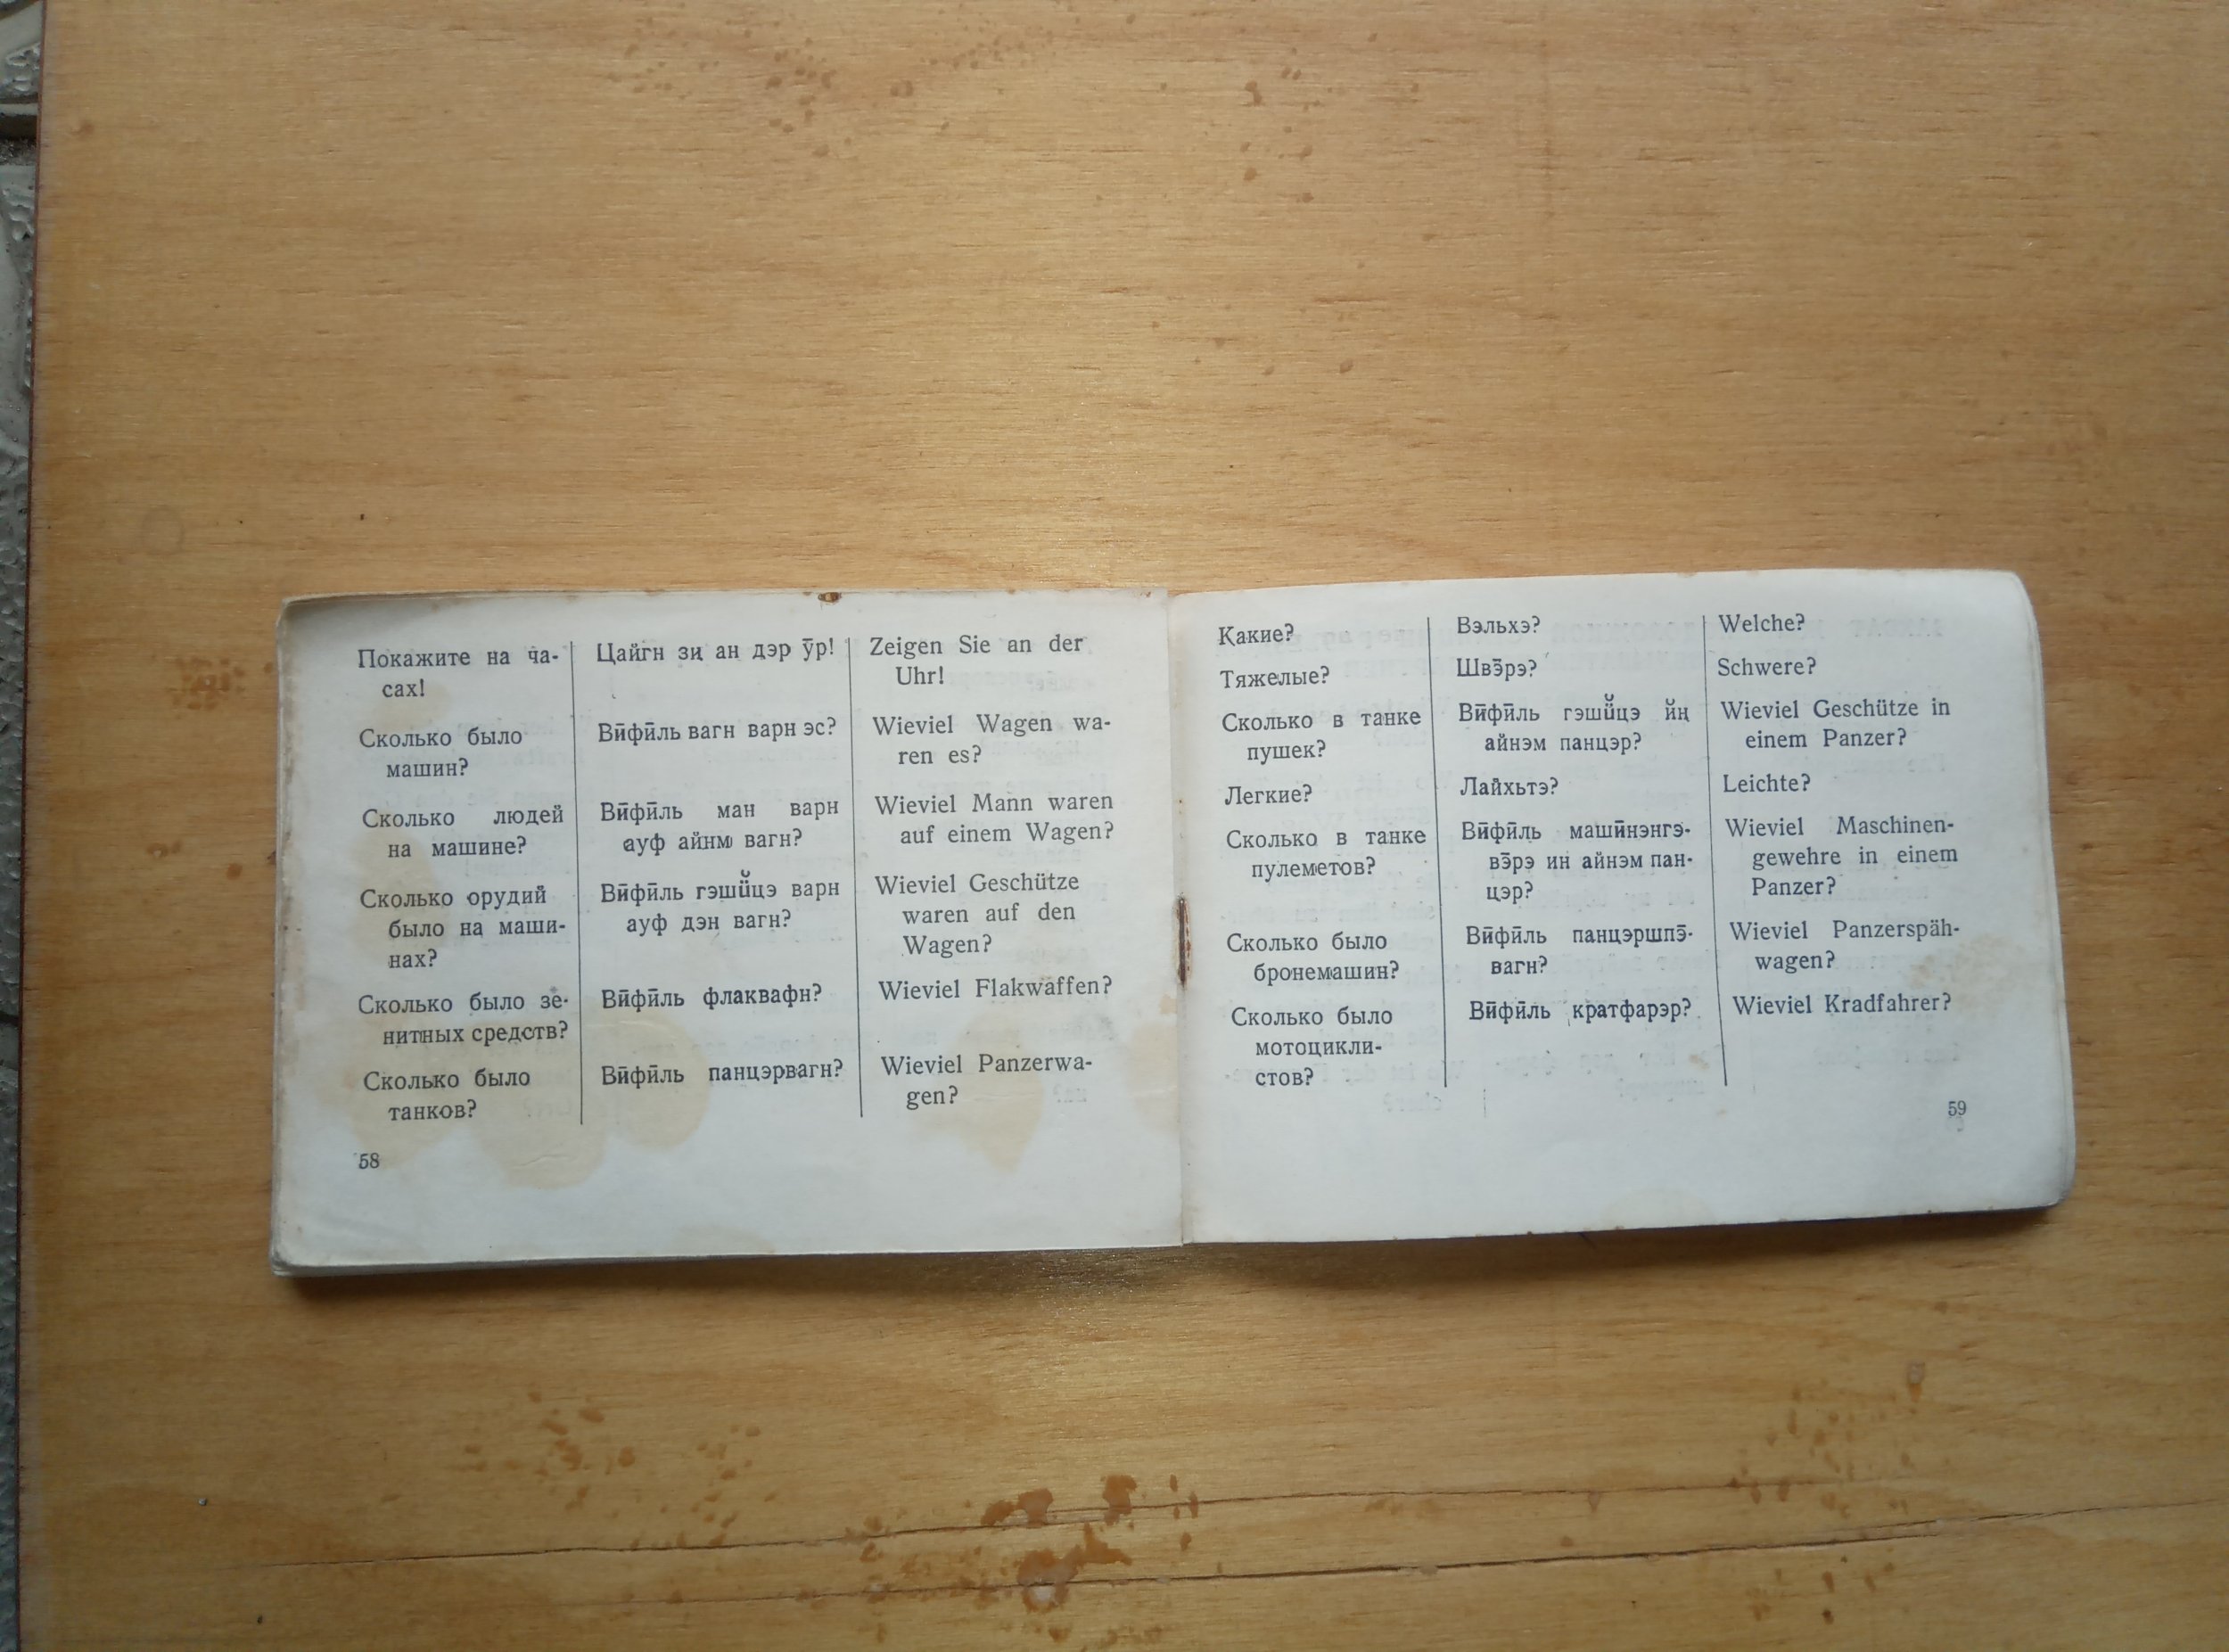 Покажите на ча-
сах!
Цайгн зи ан дэр ӯр!
Zeigen Sie an der
Uhr!
Сколько было
машин?
Вӣфӣль вагн варн эс?
Wieviel Wagen wa-
ren es?
Сколько людей
на машине?
Вӣфӣль ман варн
ауф айнм вагн?
Wieviel Mann waren
auf einem Wagen?
Сколько орудий
было на маши-
нах?
Вӣфӣль гэшю̆цэ варн
ауф дэн вагн?
Wieviel Geschütze
waren auf den
Wagen?
Сколько было зе-
нитных средств?
Вӣфӣль флаквафн?
Wieviel Flakwaffen?
Сколько было
танков?
Вӣфӣль панцэрвагн?
Wieviel Panzerwa-
gen?
58
Какие?
Вэльхэ?
Welche?
Тяжелые?
Швэ̄рэ?
Schwere?
Сколько в танке
пушек?
Вӣфӣль гэшӥцэ йн
айнэм панцэр?
Wieviel Geschütze in
einem Panzer?
Легкие?
Лайхьтэ?
Leichte?
Сколько в танке
пулеметов?
Вӣфӣль машӣнэнгэ-
вэ̄рэ ин айнэм пан-
цэр?
Wieviel Maschinen-
gewehre in einem
Panzer?
Сколько было
бронемашин?
Вӣфӣль панцэршпэ̄-
вагн?
Wieviel Panzerspäh-
wagen?
Сколько было
мотоцикли-
стов?
Вӣфӣль кратфарэр?
Wieviel Kradfahrer?
59